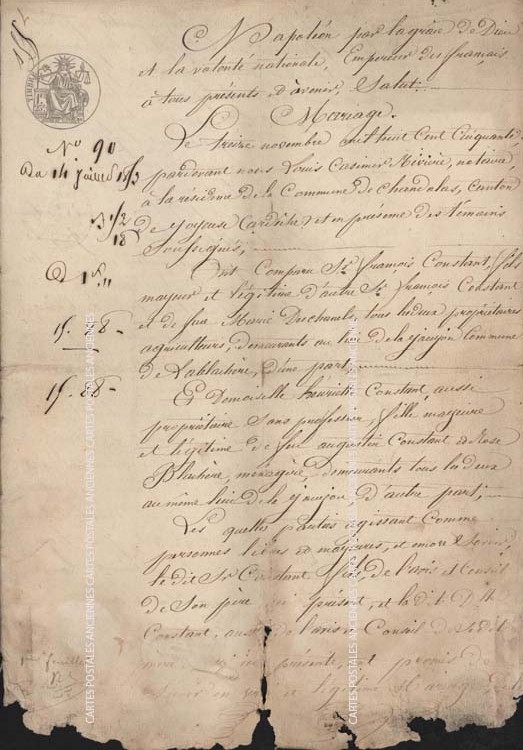 Napoléon par la grâce de Dieu
et la volonté nationale, Empereur des français
à tous présents et à venir, Salut.
Mariage.
Le treize novembre mil huit cent cinquante
pardevant nous Louis Casimir Rivière, notaire,
à la résidence de la Commune de chandolas, canton
de Joyeuse (ardèche) et en présence des témoins
Soussignés,
Ont Comparu Sr. françois Constant, fils
majeur et légitime d'autre Sr. françois Constant
et de feu Marie Deschanels, tous les deux propriétaires
agriculteurs, demeurants au lieu de la Commune
de Lablachère, d'une part,
Et Demoiselle Constant, aussi
propriétaire sans profession, fille majeure
et légitime de feu augustin Constant & Rose
Blachère, ménagère, demeurants tous les deux
au même lieu de d'autre part;
Les quelles parties agissant Comme
personnes libres et majeures, et encore Savoir,
le dit Sr Constant fils, de l'avis et Conseil
de Son père ici présent, et la dite Dlle
Constant, aussi de l'avis et Conseil de Sa dite
mère ici présente, ont promis de
et légitime Mariage
TIMBRE
No 90
Du 14
3 1/2
18
D 1 f "
15. 8-
15. 88-
CARTES POSTALES ANCIENNES CARTES POSTALES ANCIENNES CARTES POSTALES ANCIENNES
CARTES POSTALES ANCIENNES CARTES POSTALES ANCIENNES CARTES POSTALES ANCIENNES